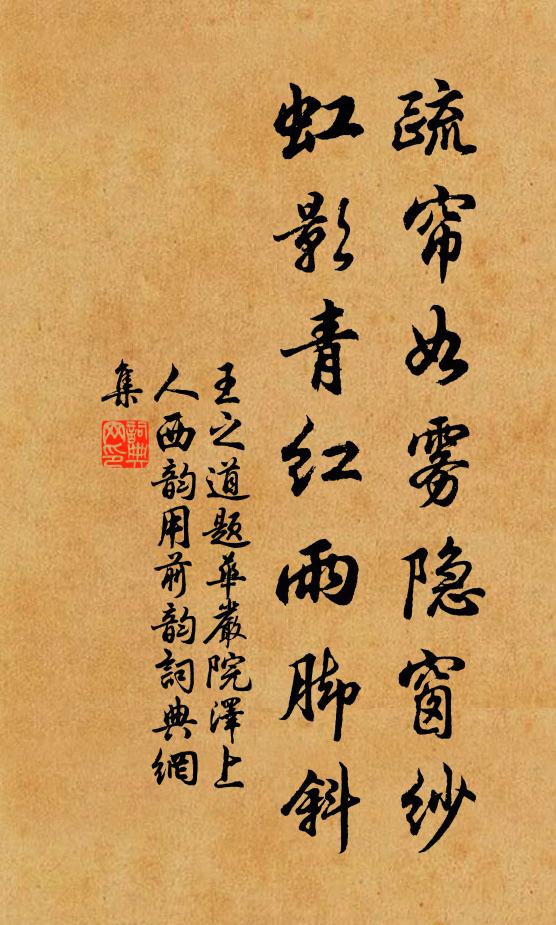 疏帘如雾隐窗纱
虹影青红雨脚斜
王之道题华嚴院澤上
人西韵用前韵詞典網
集
詞典網印